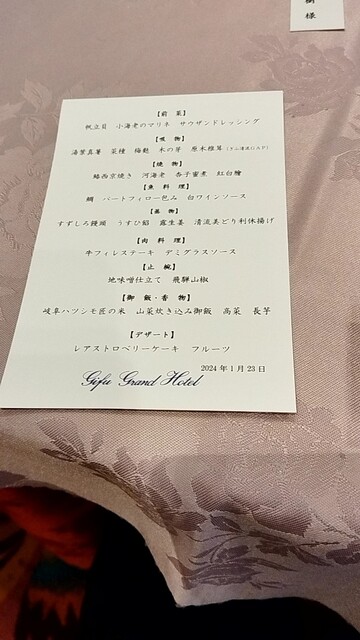 樹 様
【前 菜】
帆立貝 小海老のマリネ サウザンドレッシング
【吸 物】
湯葉真薯 菜種 梅麩 木の芽 原木椎茸(ぎふ清流GAP)
【焼 物】
鮭西京焼き 河海老 杏子蜜煮 紅白膾
【魚 料 理】
鯛 パートフィロー包み 白ワインソース
【蒸 物】
すずしろ饅頭 うすひ餡 露生姜 清流美どり利休揚げ
【肉 料 理】
牛フィレステーキ デミグラスソース
【止 椀】
地味噌仕立て 飛騨山椒
【御 飯・香 物】
岐阜ハツシモ匠の米 山菜炊き込み御飯 高菜 長芋
【デザート】
レアストロベリーケーキ フルーツ
2024年1月23日
Gifu Grand Hotel